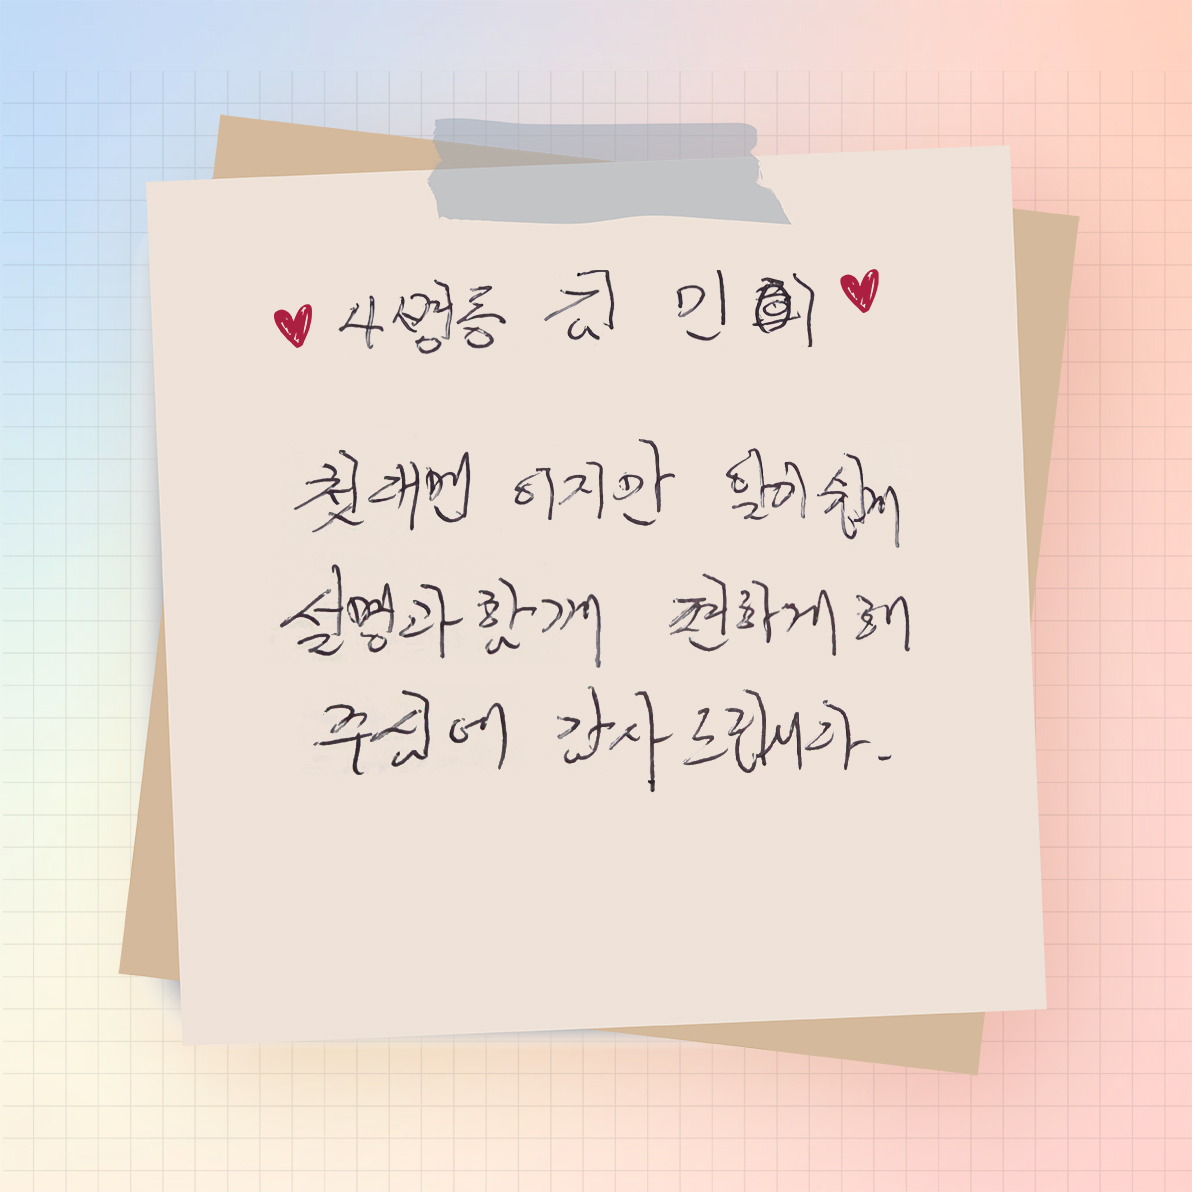 사병동 김 민희
첫대면 이지만 알아쉽게
설명과 함께 편하게 해
주심에 감사 드립니다.